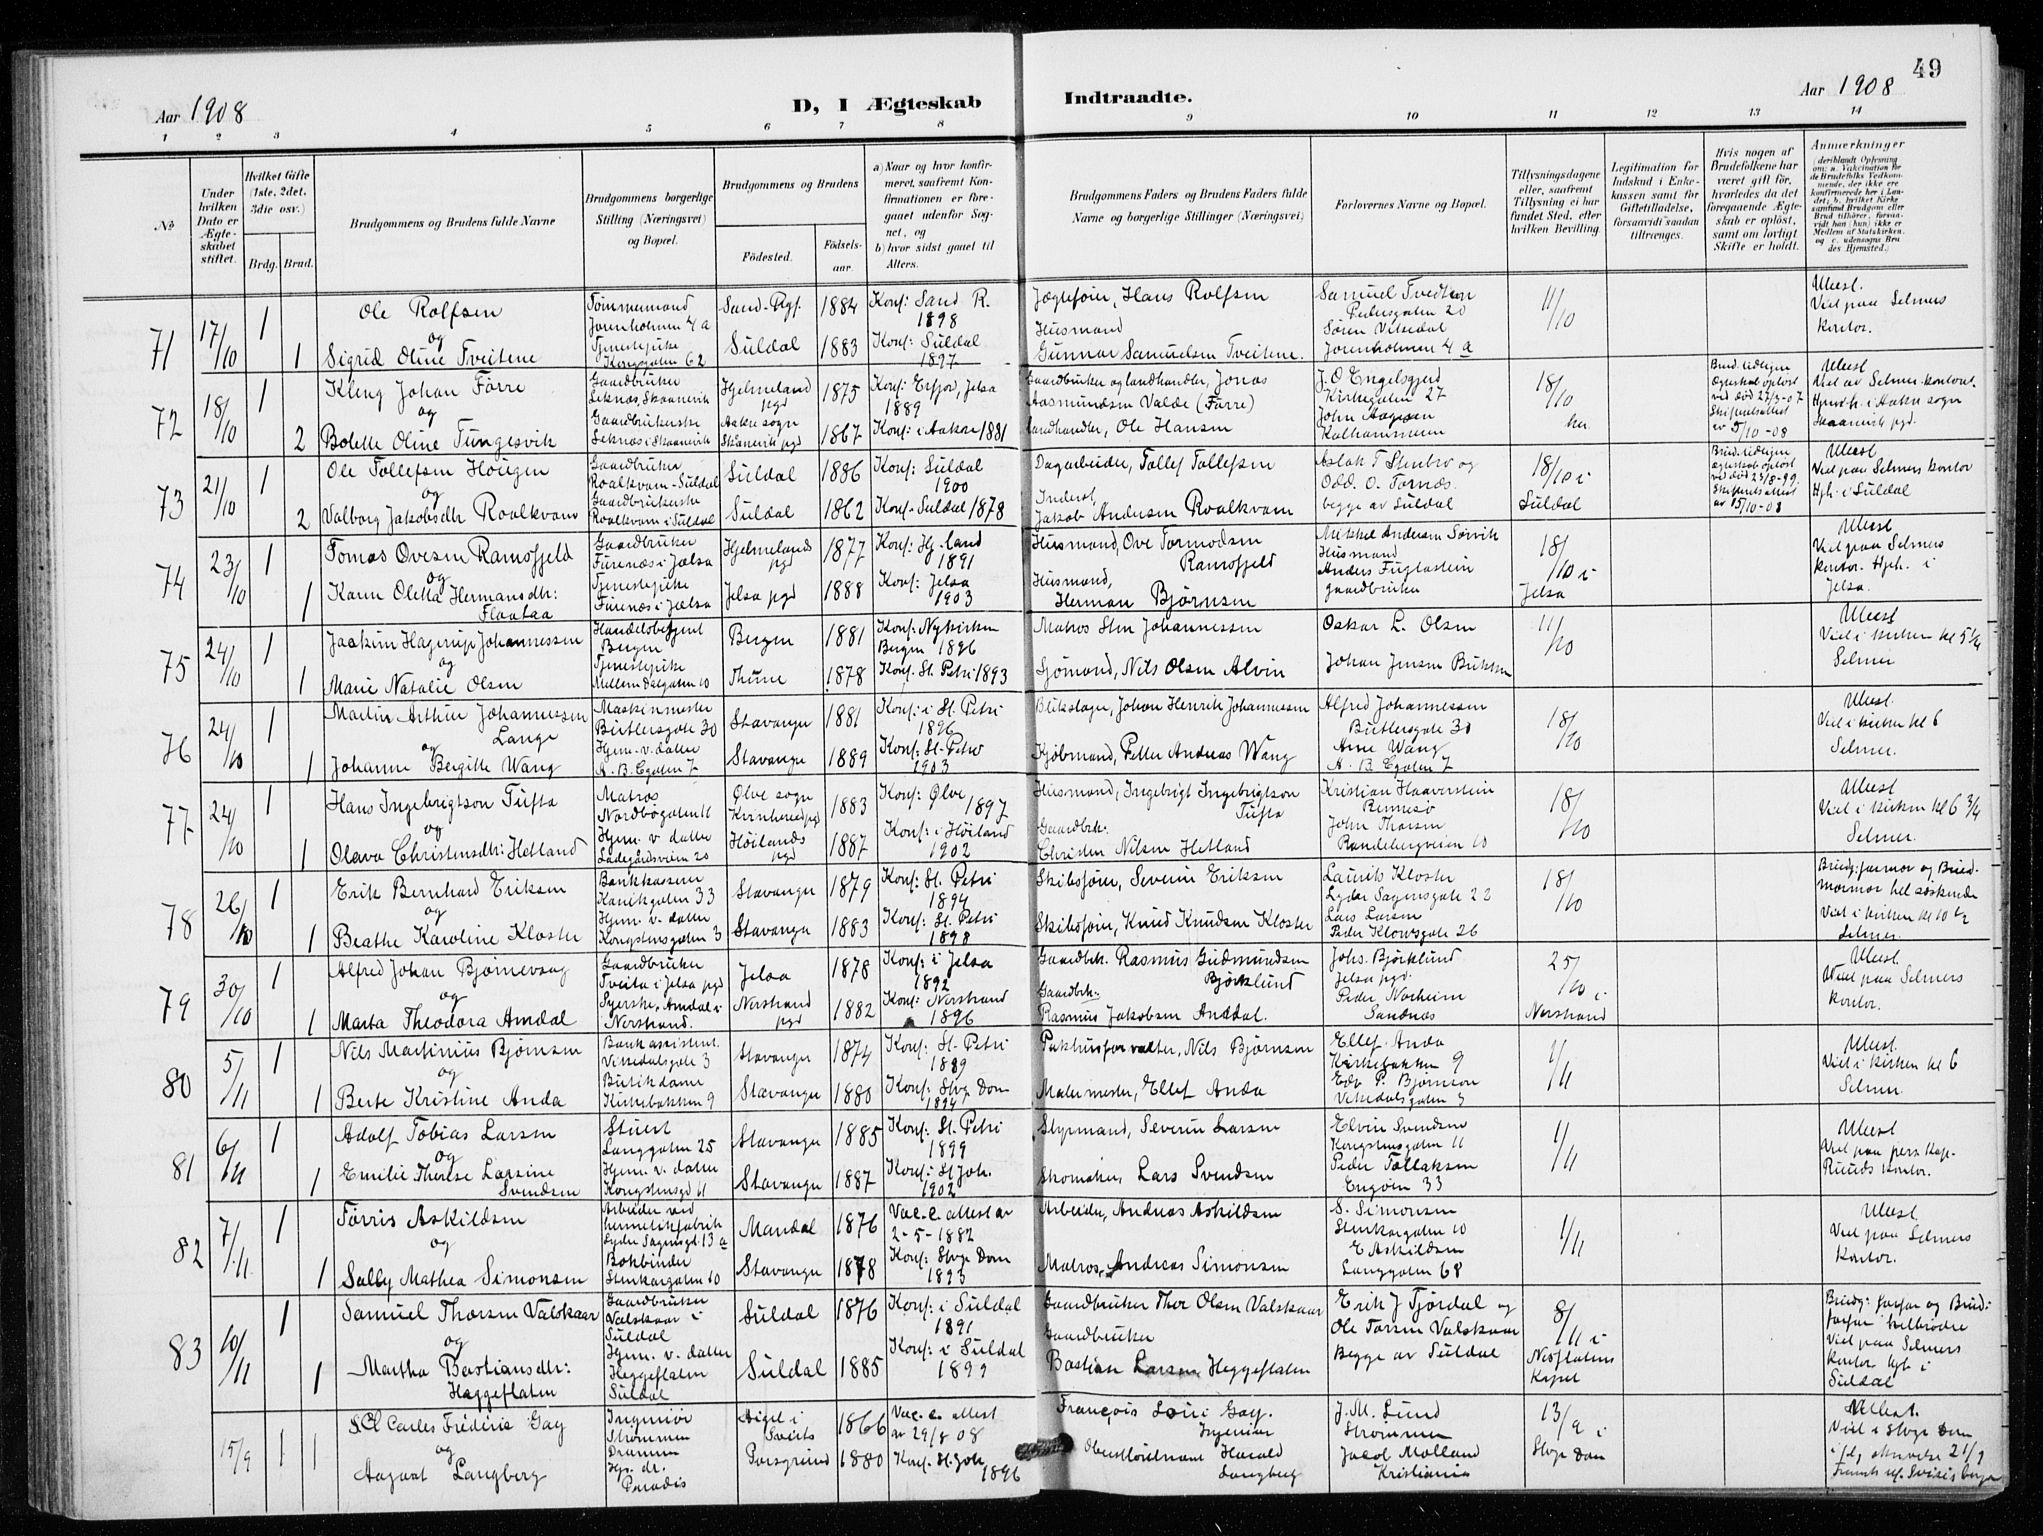 49
Aar 1908
D, I Ægteskab Indtraadte.
Aar 1908
1 2 3 4 5 6 7 8 9 10 11 12 13 14
No
Under hvilken Dato er Ægteskabet stiftet.
Hvilket Gifte (1ste, 2det, 3die osv.)
Brdg. Brud.
Brudgommens og Brudens fulde Navne
Brudgommens borgerlige Stilling (Næringsvei) og Bopæl.
Brudgommens og Brudens
Födested. Födselsaar.
a) Naar og hvor konfirmeret, saafremt Konfirmationen er foregaaet udenfor Sognet, og
b) hvor sidst gaaet til Alters.
Brudgommens Faders og Brudens Faders fulde Navne og borgerlige Stillinger (Næringsvei)
Forlovernes Navne og Bopæl.
Tillysningsdagene eller, saafremt Tillysning ei har fundet Sted, efter hvilken Bevilling.
Legitimation for Indskud i Enkekassen samt for Giftetilladelse, forsaavidt saadan tiltrænges.
Hvis nogen af Brudefolkene har været gift för, hvorledes da det foregaaende Ægteskab er oplöst, samt om lovligt Skifte er holdt.
Anmærkninger
71 17/10 1
Ole Rolfsen
og
1 Sigrid Oline Tveitene
Tømmermand
Jorenholmen 4 a
Tjenestepike
Kongsgaten 62
Sand-Ryf. 1884
Suldal 1883
Konf: Sand R.
1898
Konf: Suldal
1897
Jægtefører, Hans Rolfsen
Husmand
Gunnar Samuelsen Tveitene.
Samuel Tvedten
Pedersgaten 20
Søren Vetedal
Jorenholmen 4 a
11/10
Attest.
Viet paa Selmers
kontor.
72 18/10 1
Kleng Johan Førre
og
2 Bolette Oline Tungesvik
Gaardbruker
Leknæs, Skaanevik
Gaardbrukerske
Leknæs i Skaanevik
Hjelmeland
pgd 1875
Aakre sogn
Skaanevik pgd 1867
Konf: Erfjor, Jelsa
1889
Konf: i Aakre 1881
Gaardbruker og landhandler, Jonas
Aasmundsen Valde (Førre)
Landhandler, Ole Hansen
J. O. Engelsgjerd
Kirkegaten 27
John Aagesen
Kalhammeren
18/10
her
Brud. tidligere
Ægteskab opløst
ved død 27/3-07
Skifteattest
er 5/10-08
Attest
Viet av Selmer kontoret.
Hjemsth. i Aakre sogn
Skaanevik pgd.
73 21/10 1
Ole Tollefsen Hougen
og
2 Valborg Jakobsdtr Roalkvam
Gaardbruker
Roalkvam-Suldal
Gaardbrukerske
Roalkvam i Suldal
Suldal 1886
Suldal 1862
Konf: Suldal
1900
Konf. Suldal 1878
Dagarbeider, Tollef Tollefsen
Inderst
Jakob Andersen Roalkvam
Aslak T Stenbro og
Odd. O. Tornæs.
begge av Suldal
18/10 i
Suldal
Brud. tidligere
ægteskab opløst
ved død 23/8-99.
Skifteattest
av 15/10-08
Attest
Viet paa Selmers kontor
Hjh. i Suldal
74 23/10 1
Tomas Ovesen Ramsfjeld
og
1 Karen Oletta Hermansdtr:
Flaataa
Gaardbruker
Furenæs i Jelsa
Tjenestepike
Furenæs i Jelsa
Hjelmelands
pgd 1877
Jelsa pgd 1888
Konf: Hj-land
1891
Konf: Jelsa
1903
Husmand, Ove Tormodsen
Ramsfjeld
Husmand,
Herman Bjørnsen
Mikkel Andersen Sørvik
Husmand
Anders Fuglestein
gaardbruker
18/10 i
Jelsa
Attest
Viet paa Selmers
kontor. Hjh. i
Jelsa.
75 24/10 1
Joakim Hagerup Johannessen
og
1 Marie Natalie Olsen
Handelsbetjent
Bergen
Tjenestepike
Mellem Dalgaten 10
Bergen 1881
Thime 1878
Konf: Nykirken
Bergen 1896
Konf. St. Petri 1893
Matros Sten Johannessen
Sjømand, Nils Olsen Alvin
Oskar L. Olsen
Johan Jensen Buksen
11/10
Attest
Viet i kirken kl 5 1/4
Selmer
76 24/10 1
Martin Arthur Johannessen
Lange
og
1 Johanne Bergitte Wang
Maskinmester
Butlersgate 30
Hjem. v. datter
A. B. Egaten 7
Stavanger 1881
Stavanger 1889
Konf: i St. Petri
1896
Konf: St. Petri
1903
Blikslager, Johan Henrik Johannessen
Kjøbmand, Petter Andreas Wang
Alfred Johannessen
Butlersgate 30
Arne Wang
A. B. Egaten 7
18/10
Attest.
Viet i kirken kl 6
Selmer.
77 24/10 1
Hans Ingebrigtsen Tufta
og
1 Olava Christensdtr: Hetland
Matros
Nordbøgaten 11
Hjem. v datter
Ladegårdsveien 20
Ølve sogn
Kvinherred pgd 1883
Høilands
pgd 1887
Konf: Ølve
1897
Konf: i Høiland
1902
Husmand, Ingebrigt Ingebrigtsen
Tufta
Gaardbr.
Christen Nilsen Hetland
Kristian Haaverstein
Rennesø
John Thorsen
Randebergveien 10
18/10
Attest
Viet i kirken kl 6 3/4
Selmer.
78 26/10 1
Erik Bernhard Eriksen
og
1 Beathe Karoline Kloster
Bankkasserer
Kanikgaten 33
Hjem. v. datter
Kongstensgaten 3
Stavanger 1879
Stavanger 1883
Konf: St. Petri
1894
Konf: St. Petri
1898
Skibsfører, Severin Eriksen
Skibsfører, Knud Knudsen Kloster
Laurits Kloster
Lyder Sagensgate 22
Lars Larsen
Peder Klowsgate 26
18/10
Brudg: farmor og Brud.
mormor hel søskende
Viet i kirken kl 10 1/2
Selmer.
79 30/10 1
Alfred Johan Bjørnevaag
og
1 Marta Theodora Amdal
Gaardbruker
Tveita i Jelsa pgd
Syerske, Amdal i
Nerstrand.
Jelsa 1878
Nerstrand
pgd 1882
Konf: i Jelsa
1892
Konf: Nerstrand
1896
Gaardbr. Rasmus Gudmundsen
Bjørklund
Gaardbr.
Rasmus Jakobsen Amdal.
Johs. Bjørklund
Jelsa pgd.
Peder Norheim
Sandnæs
25/10 i
Nerstrand
Attest
Viet paa Selmers
kontor.
80 5/11 1
Nils Martinius Bjørnsen
og
1 Berte Kristine Anda
Bankassistent.
Vikedalsgate 3
Butikdame
Kirkebakken 9
Stavanger 1874
Stavanger 1880
Konf: St. Petri
1889
Konf: Stvgr Dom
1894
Pakhusforvalter, Nils Bjørnson
Malermester, Ellef Anda
Ellef Anda
Kirkebakken 9
Edv P. Bjørnson
Vikedalsgaten 3
1/11
Attest.
Viet i kirken kl 6
Selmer.
81 6/11 1
Adolf Tobias Larsen
og
1 Emilie Therese Larsine
Svendsen
Stuert
Langgaten 25
Hjem. v. datter
Kongstensgd 11
Stavanger 1885
Stavanger 1887
Konf: St. Petri
1899
Konf: St. Joh.
1902
Styrmand, Severin Larsen
Skomaker, Lars Svendsen
Elvin Svendsen
Kongstensgaten 11
Peder Tollaksen
Engøien 33
1/11
Attest
Viet paa pers Kap.
Ruuds kontor.
82 7/11 1
Tørris Askildsen
og
1 Sally Mathea Simonsen
Arbeider ved
hermetikfabrik
Lyder Sagensgt. 13 a
Bokbinder
Stenkargaten 10
Mandal 1876
Stavanger 1878
Vac. c. attest av
2-5-1882
Konf: Stvgr Dom
1893
Arbeider, Andreas Askildsen
Matros, Andreas Simonsen
S. Simonsen
Stenkargaten 10
E Askildsen
Langgaten 68
1/11
Attest
Viet paa Selmers
Kontor.
83 10/11 1
Samuel Thorsen Valskaar
og
1 Martha Bastiansdtr:
Heggeflaten
Gaardbruker
Valskaar i
Suldal
Hjem. v. datter
Heggeflaten
Suldal
Suldal 1876
Suldal 1885
Konf: i Suldal
1891
Konf: i Suldal
1899
Gaardbruker Thor Olsen Valskaar
Gaardbruker
Bastian Larsen Heggeflaten
Erik J Tjørdal og
Ole Torsen Valskaar
Begge av Suldal
8/11 i
Nesflatens
Kapel
Brudg: farfar og Brud:
farfar helbrødre
Viet paa Selmers
Kontor hjh i
Suldal
15/9 1 1
Carles Frederic Gay
og
Aagaat Langberg
Ingeniør
Strømmen
Drammen
Hjs. dr.
Paradis
Aigel i
Sveits 1866
Porsgrund 1880
Vac. c. attest
av 29/8 08
Konf. St. Joh.
1896
François Loui Gay.
Ingeniør
Oberstløitnant Harald
Langberg
J. M. Lund
Strømmen
Jacob Molland
Kristiania
13/9 i
Stvgr Dom
Attest.
Viet i Stvgr Dom